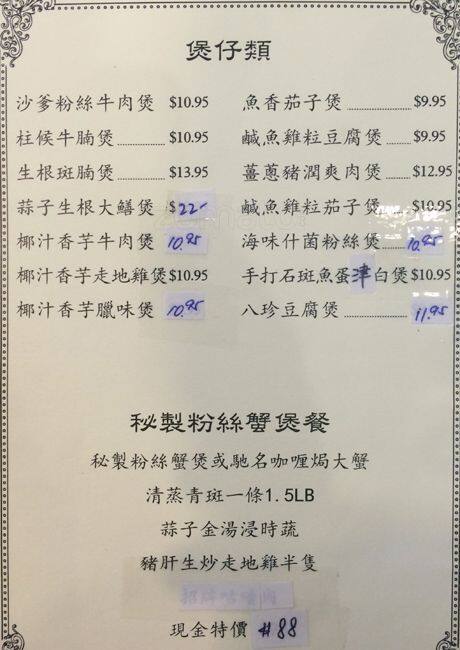 煲仔類
沙爹粉絲牛肉煲 $10.95
柱候牛腩煲 $10.95
生根斑腩煲 $13.95
蒜子生根大鱔煲 $22-
椰汁香芋牛肉煲 10.95
椰汁香芋走地雞煲 $10.95
椰汁香芋臘味煲 10.95
魚香茄子煲 $9.95
鹹魚雞粒豆腐煲 $9.95
薑蔥豬潤爽肉煲 $12.95
鹹魚雞粒茄子煲 $10.95
海味什菌粉絲煲 10.95
手打石斑魚蛋津白煲 $10.95
八珍豆腐煲 11.95
秘製粉絲蟹煲餐
秘製粉絲蟹煲或馳名咖喱焗大蟹
清蒸青斑一條1.5LB
蒜子金湯浸時蔬
豬肝生炒走地雞半隻
招牌咕嚕肉
現金特價 #88